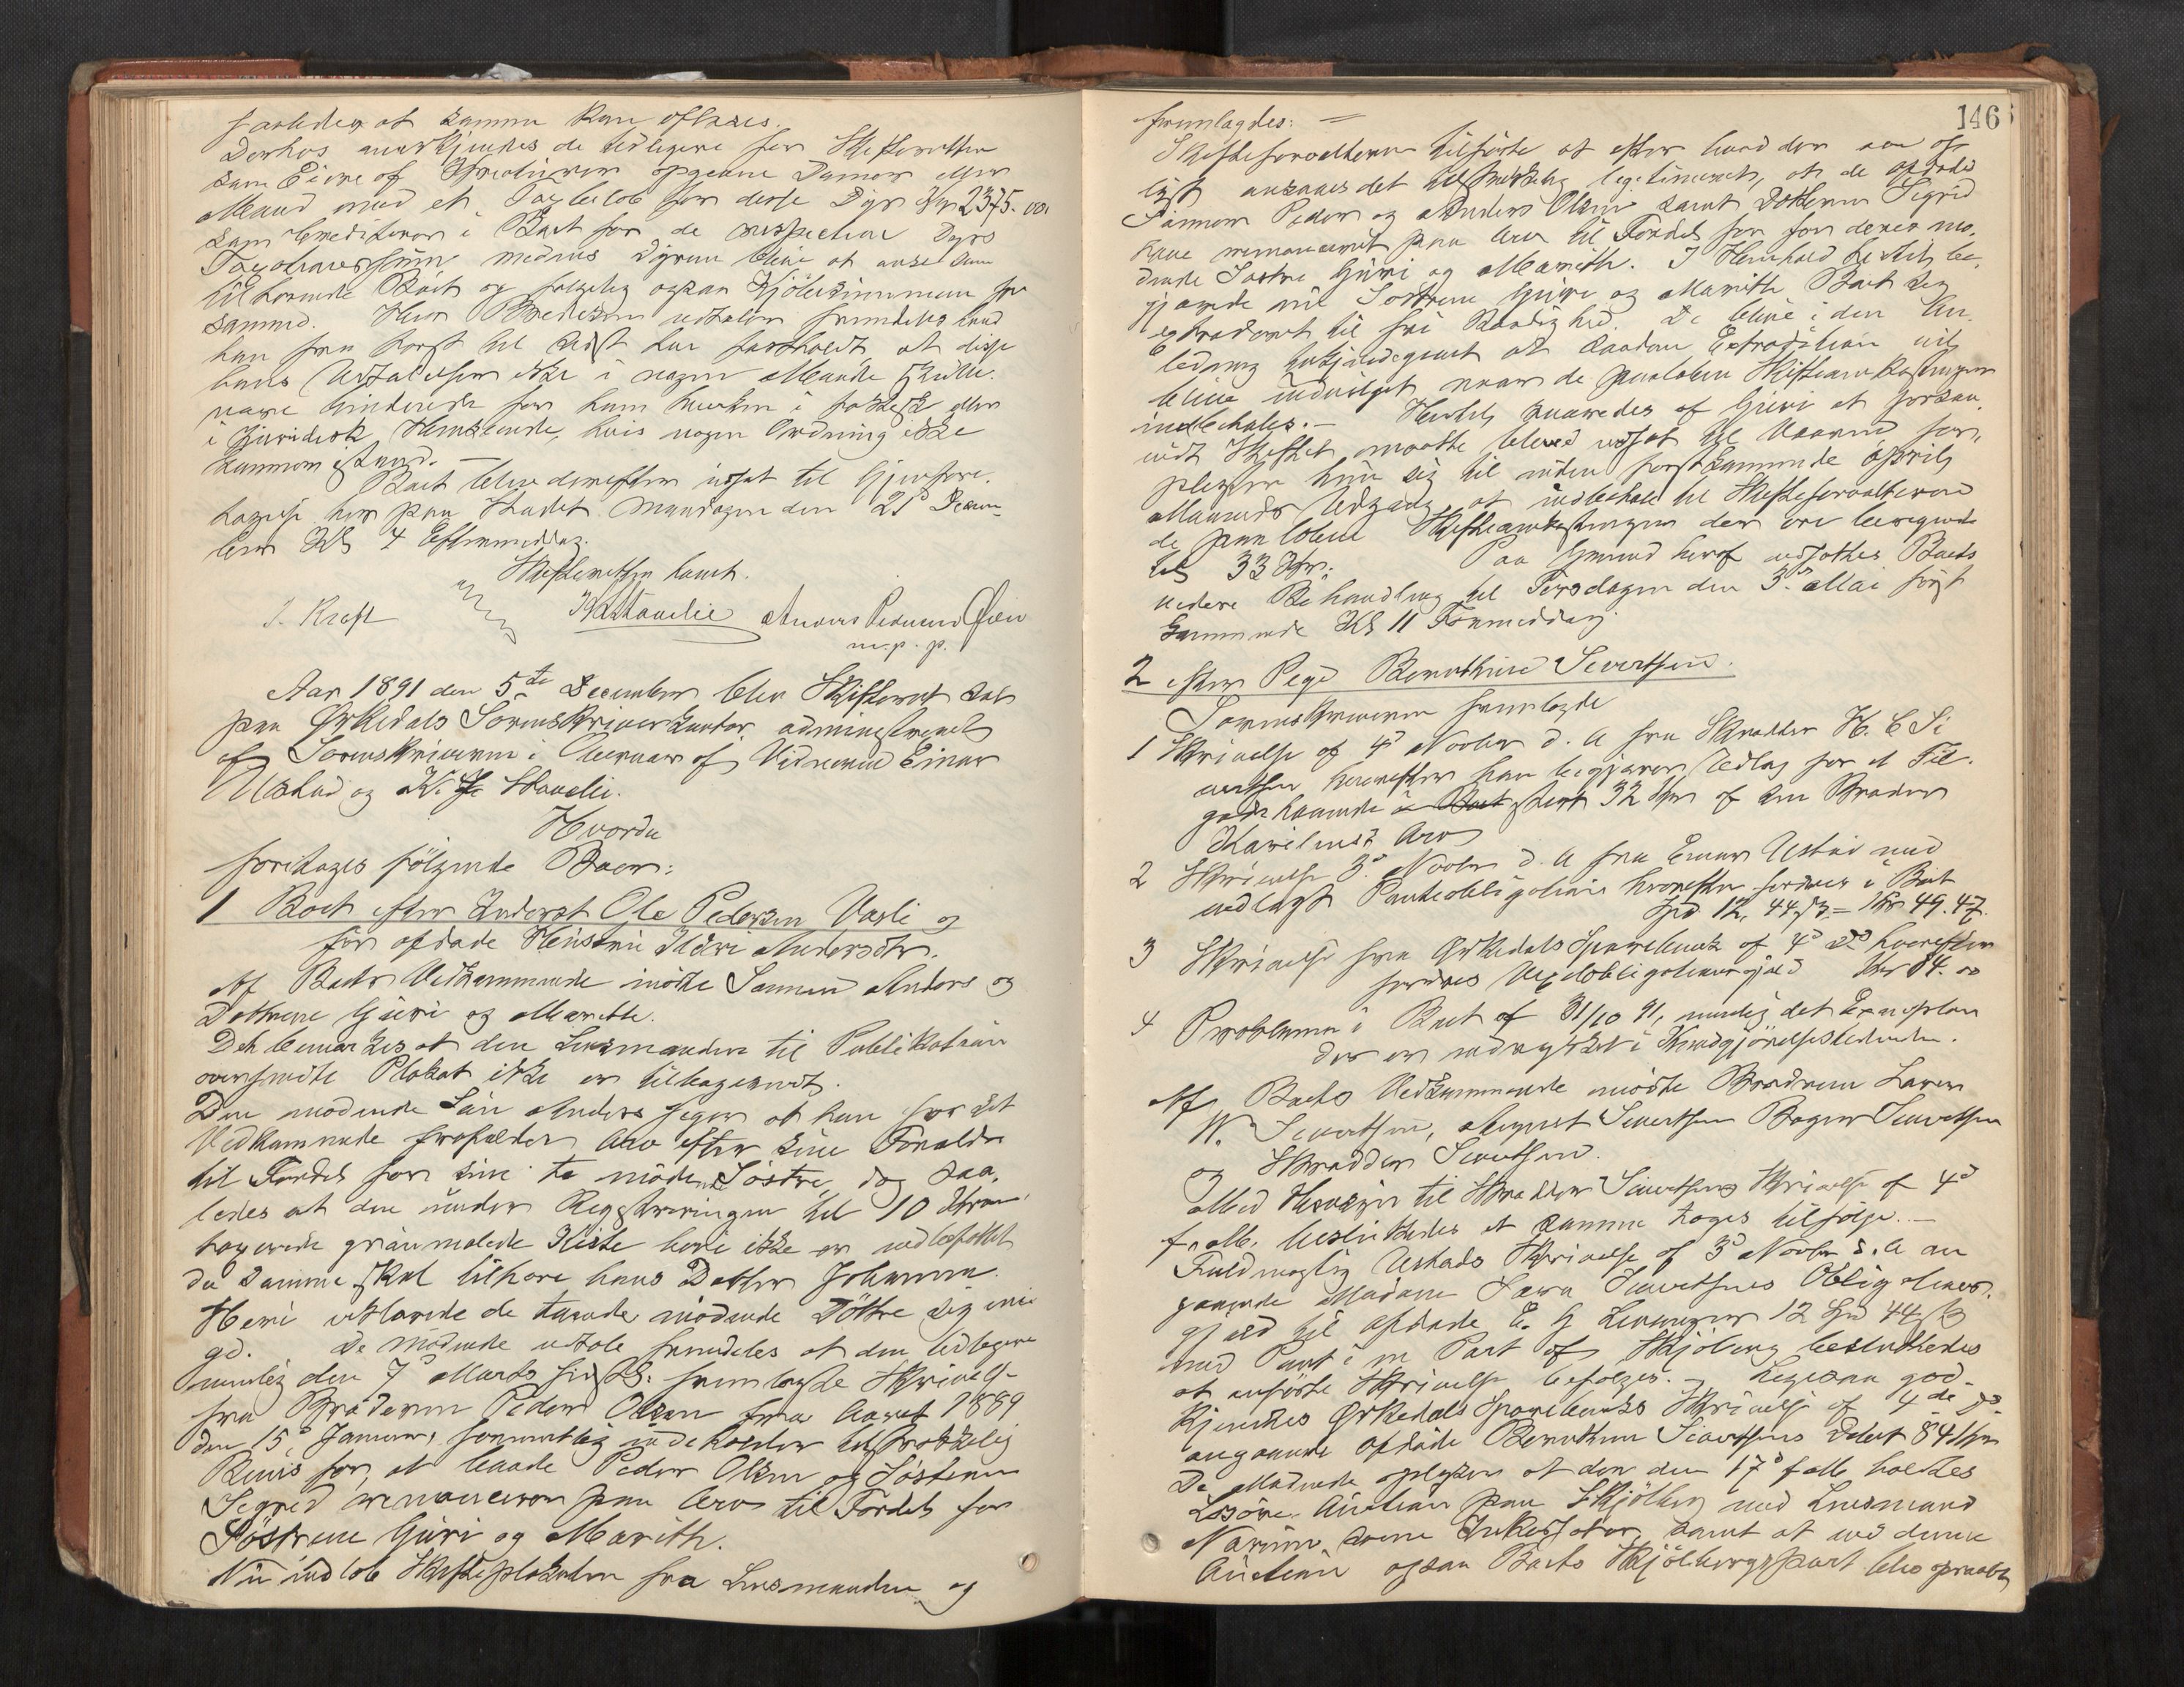 saaledes at samme kan oplæses.
Derhos anerkjendes de tidligere for Skifteretten
som Eiere af Kreaturer opgivne Damer eller
Mænd med et Taxtbeløb for disse Dyr Kr 2375.00
som Creditorer i Boet for de respective Dyrs
Taxationssum medens Dyrene blive at anse som
tilhørende Boet og følgelig ogsaa Kjøbesummen for
samme. Herr Bredesen udtaler fremdeles hvad
han fra først til sidst har fastholdt at disse
hans Udtalelser ikke i nogen Maade skulle
være hindrende for ham hverken i faktisk eller
i juridisk Henseende, hvis nogen Ordning ikke
kommer istand. —
Boet blev derefter udsat til Gjenfore-
tagelse her paa Stedet Mandagen den 21de Decem-
ber Kl 4 Eftermiddag.
Skifteretten hævet.
J. Kraft K Havelie Anders Pedersen Øien
m. p. p.
Aar 1891 den 5te December blev Skifteret sat
paa Ørkedals Sorenskriverkontor, administreret
af Sorenskriveren i Overvær af Vidnerne Einar
Ustad og K. Havelie.
Hvorda
foretages følgende Boer:
1 Boet efter Inderst Ole Pedersen Vasli og
før afdøde Hustru Ildri Andersdtr.
Af Boets Vedkommende mødte Sønnen Anders og
Døttrene Guri og Marith.
Det bemærkes at den Lensmanden til Publikation
oversendte Plakat ikke er tilbagesendt.
Den mødende Søn Anders siger at han for sit
Vedkommende frafalder Arv efter sine Foraldre
til Fordel for sine to mødende Søstre, dog saa-
ledes at den under Registreringen til 10 Kroner
taxerede graamalede Kiste heri ikke er indbefattet
da samme skal tilhøre hans Datter Johanna.
Heri erklærede de tvende mødende Døttre sig eni-
ge. De mødende udtale fremdeles at den tidligere
nemlig den 7de Marts sidstl: fremlagde Skrivelse
fra Broderen Peder Olsen fra Aaret 1889
den 15de Januar, formentlig indeholder tilstrækkelig
Bevis for, at baade Peder Olsen og Søsteren
Sigrid renoncerer paa Arv til Fordel for
Søstrene Guri og Marith.
Nu indløb Skifteplakaten fra Lensmanden og
146
fremlagdes: —
Skifteforvalteren tilførte at efter hvad der var op-
lyst ansaaes det tilstrækkelig legitimeret, at de afdødes
Sønner Peder og Anders Olsen samt Datteren Sigrid
have renonceret paa Arv til Fordel for for deres mø-
dende Søstre Guri og Marith. I Henhold hertil be-
gjærede nu Søstrene Guri og Marith Boet sig
extraderet til fri Raadighed. De bleve i den An-
ledning tilkjendegivet at saadan Extradition vil
blive indvilget naar de paaløbne Skifteomkostninger
indbetales. — Hertil svaredes af Guri at forsaa-
vidt Skiftet maatte blive udsat til Vaaren for-
pligter hun sig til inden førstkommende Aprils
Maaneds Udgang at indbetale til Skifteforvalteren
de paaløbne Skifteomkostninger der ere beregnede
til 33 Kr. Paa Grund heraf udsættes Boets
videre Behandling til Tirsdagen den 3de Mai først-
kommende Kl 11 Formiddag
2 efter Pige Berntine Sivertsen.
Sorenskriveren fremlagde
1 Skrivelse af 4de Novbr d. A fra Skrædder H. E Si
vertsen hvorefter han begjærer Udlæg for et Til-
godehavende stort 32 Kr af sin Broder
Karelius's Arv
2 Skrivelse 3de Novbr d. A fra Einar Ustad med
vedlagt Panteobligation hvorefter fordres i Boet
Spd 12, 44 ß = Kr 49.47.
3 Skrivelse fra Ørkedals Sparebank af 4de ds hvorefter
fordres Vexelobligationsgjæld Kr 84.00
4 Proklama i Boet af 31/10 91, nemlig det Exemplar
der er indrykket i Kundgjørelsestidende.
Af Boets Vedkommende mødte Brødrene Laren
N. Sivertsen, August Sivertsen Bager Sivertsen
og Skrædder Sivertsen.
Med Hensyn til Skrædder Sivertsens Skrivelse af 4de
f. M. besluttedes at samme toges tilfølge. —
Fuldmægtig Ustads Skrivelse af 3de Novbr d. A an
gaaende Madame Sara Sivertsens Obligations-
gjæld til afdøde E. G 12 Spd 44 ß
med Pant i en Part af Skjølberg besluttedes
at anførte Skrivelse befølges. — Ligesaa god-
kjendtes Ørkedals Sparebanks Skrivelse af 4de ds
angaaende afdøde Berntine Sivertsens Debet 84 Kr
De Mødende oplyser at der den 17de f M holdtes
Løsøre Auction paa Skjølberg med Lensmand
som Inkassator, samt at ved denne
Auction ogsaa Boets Skjølbergspart blev opraabt